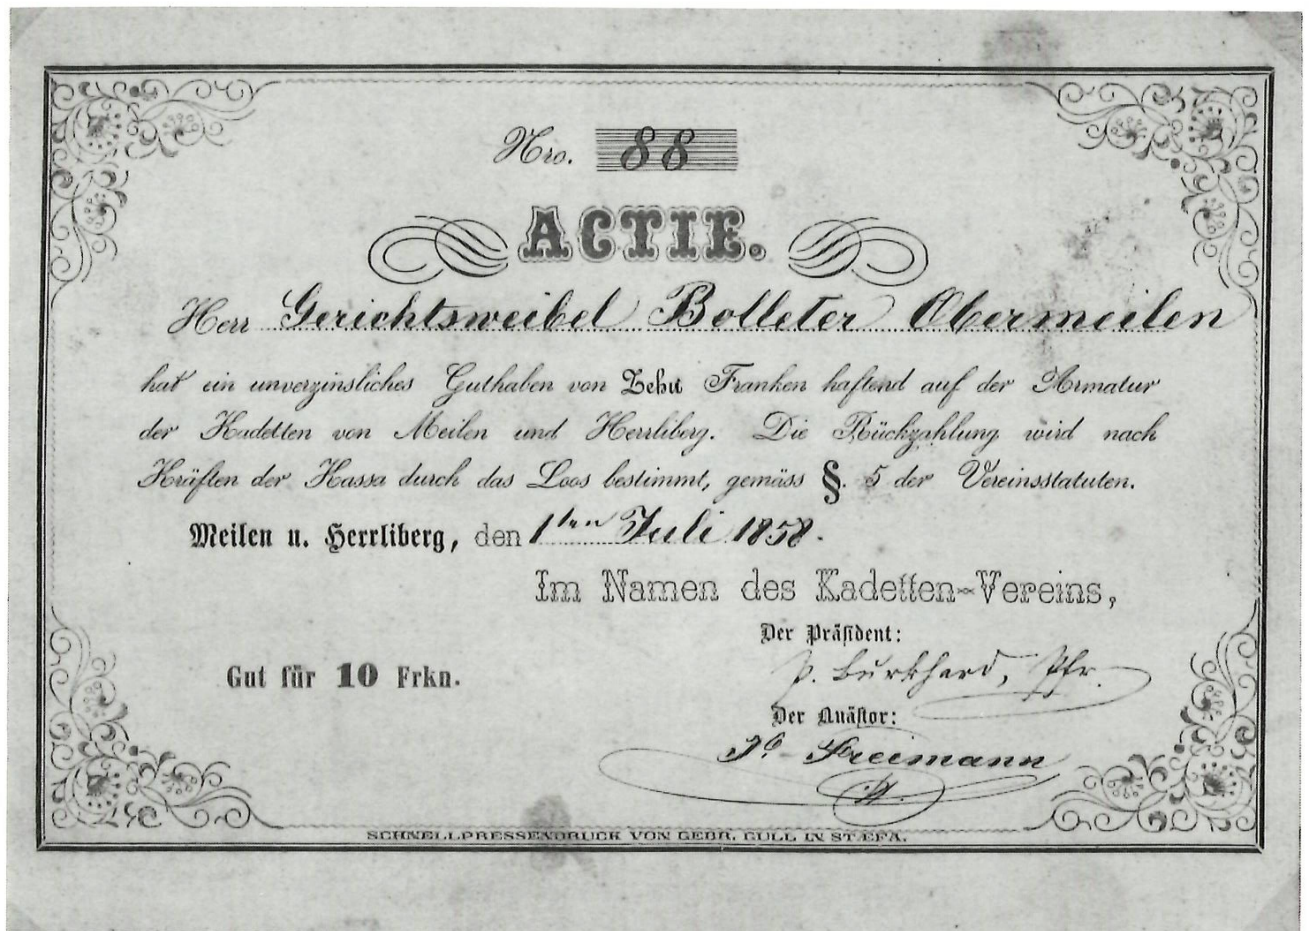 Nro. 88
ACTIE.
Herr Gerichtsweibel Bolleter Obermeilen
hat ein unverzinsliches Guthaben von Zehn Franken haftend auf der Armatur
der Kadetten von Meilen und Herrliberg. Die Rückzahlung wird nach
Kräften der Kassa durch das Loos bestimmt, gemäss §. 5 der Vereinsstatuten.
Meilen u. Herrliberg, den 1ten Juli 1858.
Im Namen des Kadetten-Vereins,
Der Präsident:
Gut für 10 Frkn.
p. Burkhard, Pfr.
Der Quästor:
Jb. Freimann
SCHNELLPRESSENDRUCK VON GEBR. GULL IN STÆFA.